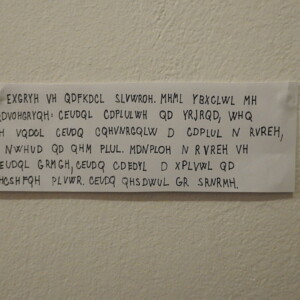 EXGRYH VH QDFKDCL SLVWROH. MHML YBXGLWL MH
QDVOHGRYQH: CEUDQL CDPLULWH QD YRJRQD, WHQ
H VQDCL CEUDQ CQHVNRGQLW D CDPLUL N AVREH,
NWHUD QD QHM PLUL. MDNPLOH N RVREH VH
EUDQL GRMGH, CEUDQ CDEDYL D XPLVWL QD
HCSHFQH PLVWR. CEUDQ QHSDWUL GR SRNRMH.